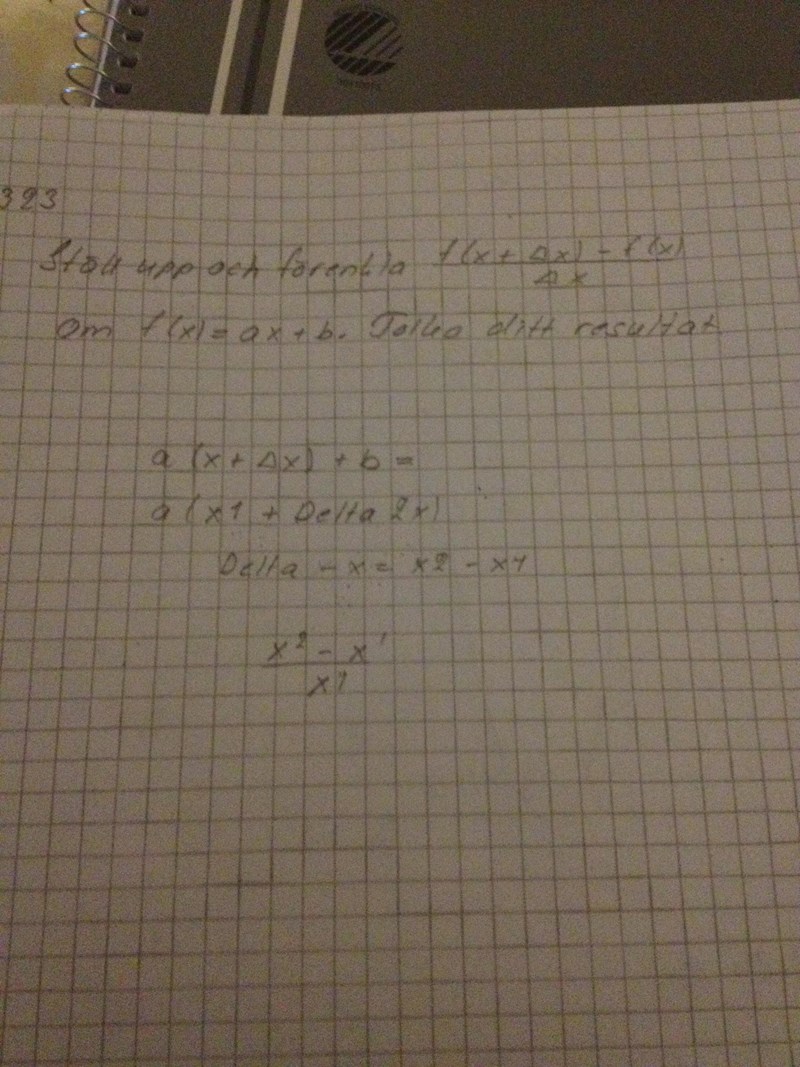 323
Ställ upp och förenkla f(x + Δx) - f(x)
Δx
om f(x) = ax + b. Tolka ditt resultat
a (x + Δx) + b =
a (x1 + Delta 2x)
Delta - x = x2 - x1
x2 - x1
x1